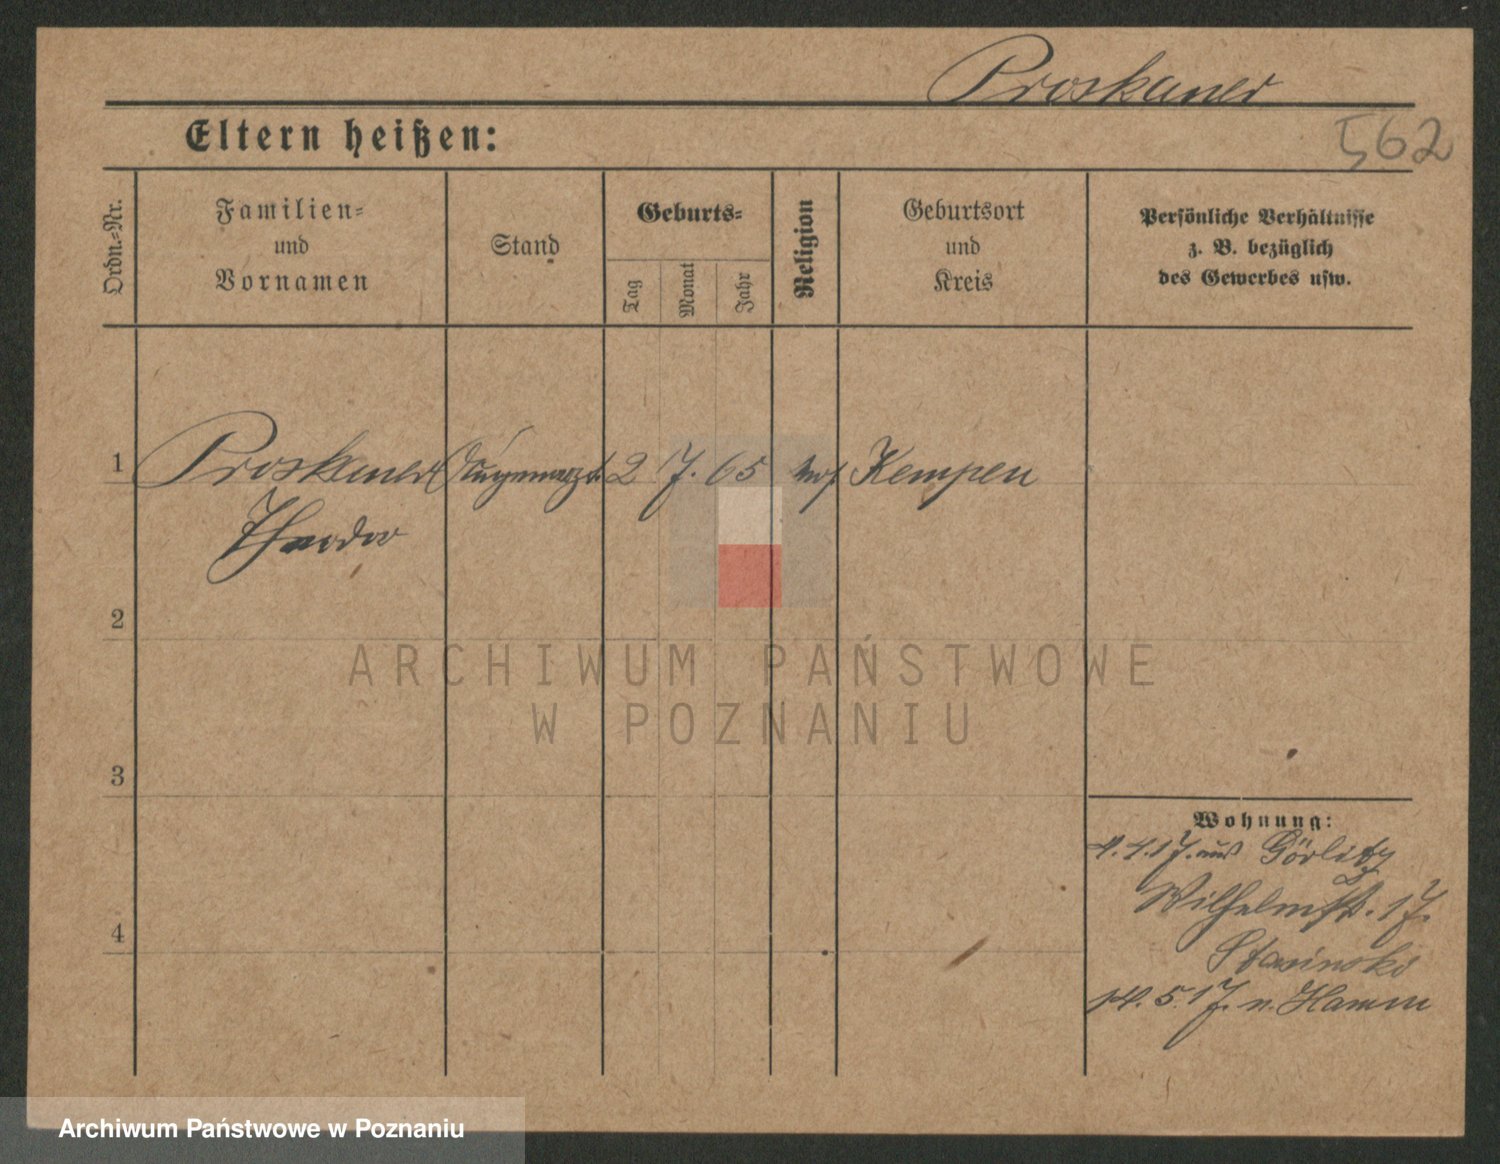 Proskauer
562
Eltern heißen:
Ordn.-Nr.
Familien-
und
Vornamen
Stand
Geburts-
Tag
Monat
Jahr
Religion
Geburtsort
und
Kreis
Persönliche Verhältnisse
z. B. bezüglich
des Gewerbes usw.
1 Proskauer Augenarzt 2 7. 65 mos. Kempen
Theodor
2
ARCHIWUM PAŃSTWOWE
W POZNANIU
3
Wohnung:
4.17. aus Görlitz
Wilhelmstr. 17.
Stasinski
4
14.5.17. n. Hamm
Archiwum Państwowe w Poznaniu